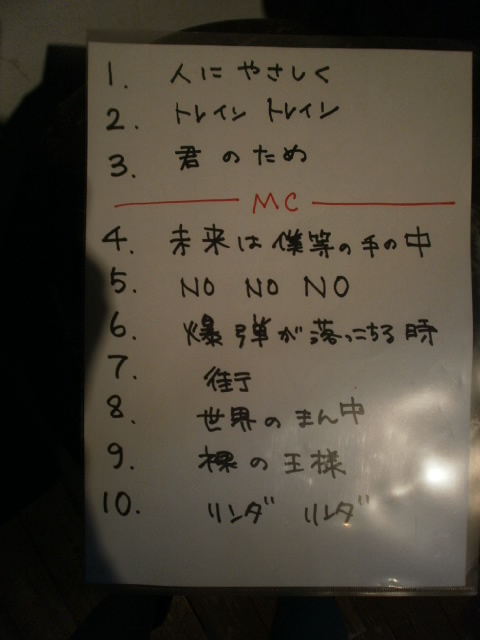 1. 人にやさしく
2. トレイン トレイン
3. 君のため
MC
4. 未来は僕等の手の中
5. NO NO NO
6. 爆弾が落っこちる時
7. 街
8. 世界のまん中
9. 裸の王様
10. リンダ リンダ